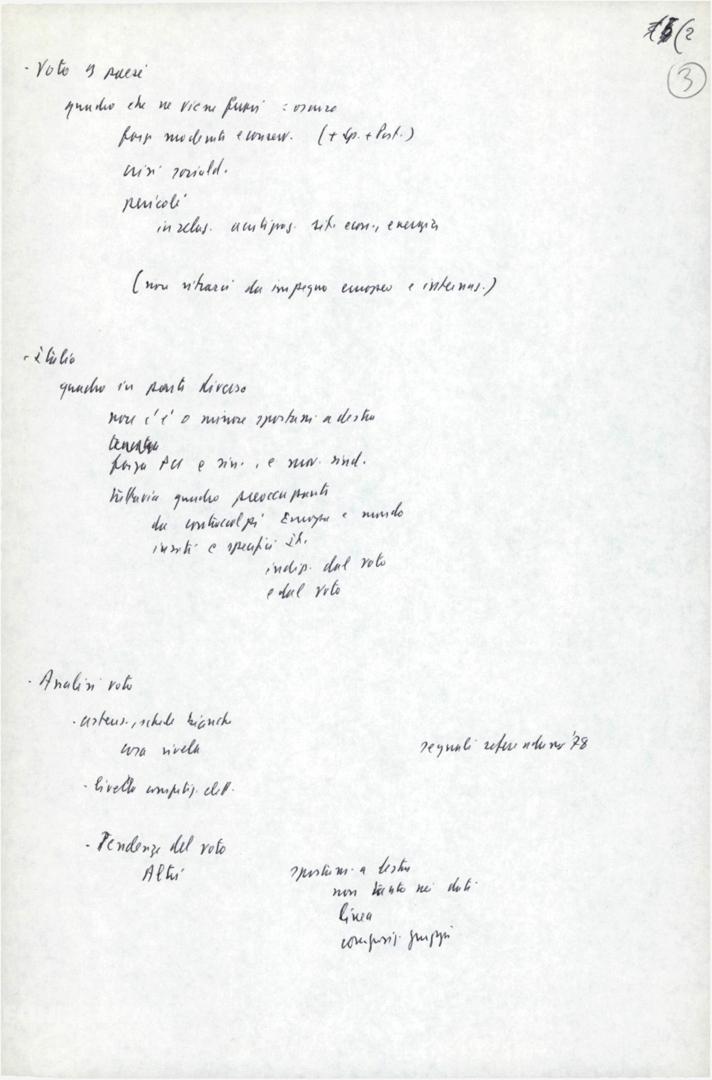 (2
3
- Voto 9 paesi
quadro che ne viene fuori :
forze moderate e conserv. (+ Sp. + Port.)
crisi sociald.
pericoli
in relaz. sit. econ., energia
(non ritrarci da impegno europeo e internaz.)
- Italia
quadro in parte diverso
non c'è o minore spostam. a destra
forza PCI e sin., e mov. sind.
tuttavia quadro preoccupante
da contraccolpi Europa e mondo
e specifici It.
indip. dal voto
e dal voto
- Analisi voto
- astens., schede bianche
cosa rivela
segnali referendum '78
- livello competiz. elett.
- Tendenze del voto
Altri
spostam. a destra
non tanto nei dati
linea
composiz. gruppi